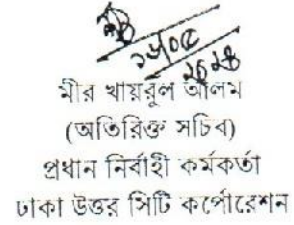 ১৬/০৫
২০২৪
মীর খায়রুল আলম
(অতিরিক্ত সচিব)
প্রধান নির্বাহী কর্মকর্তা
ঢাকা উত্তর সিটি কর্পোরেশন